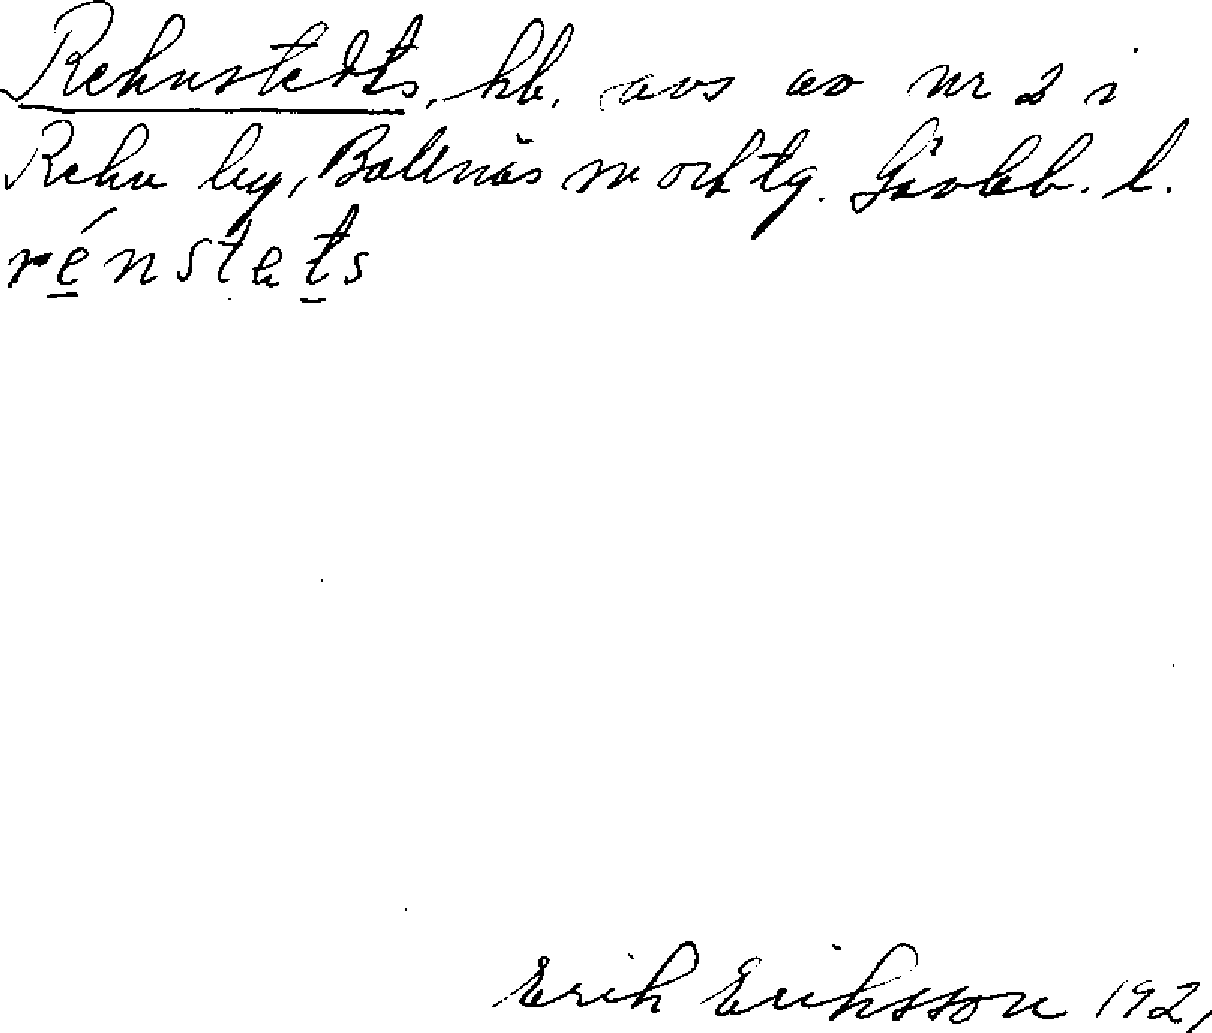 Rehnstedts, hb. avs av nr 2 i
Rehn by, Bollnäs sn och tg. Gävleb. l.
rénstets
Erik Eriksson 192,